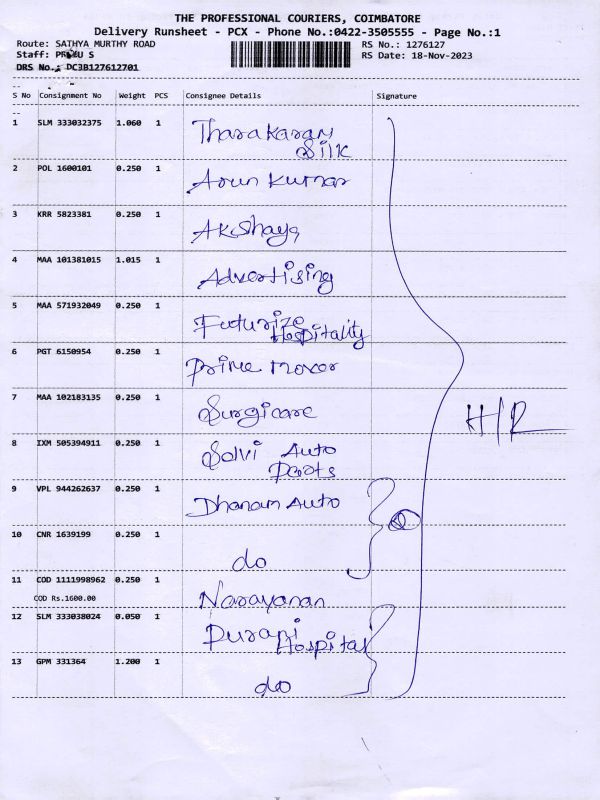 THE PROFESSIONAL COURIERS, COIMBATORE
Delivery Runsheet - PCX - Phone No.:0422-3505555 - Page No.:1
Route: SATHYA MURTHY ROAD RS No.: 1276127
Staff: S RS Date: 18-Nov-2023
DRS No.: DC3B127612701
S No Consignment No Weight PCS Consignee Details Signature
1 SLM 333032375 1.060 1 Tharakaram
Silk
2 POL 1600101 0.250 1 Arun Kumar
3 KRR 5823381 0.250 1 Akshaya
4 MAA 101381015 1.015 1 Advertising
5 MAA 571932049 0.250 1 Futurize
Hospitality
6 PGT 6150954 0.250 1 Prime mover
7 MAA 102183135 0.250 1 Surgicare
H/R
8 IXM 505394911 0.250 1 Selvi Auto
Parts
9 VPL 944262637 0.250 1 Dhanam Auto
10 CNR 1639199 0.250 1
do
11 COD 1111998962 0.250 1 Narayanan
COD Rs.1600.00
12 SLM 333038024 0.050 1 Purani
Hospital
13 GPM 331364 1.200 1 do